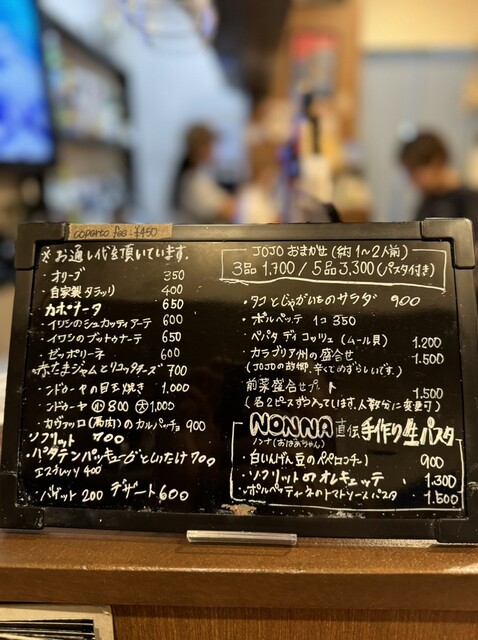 coperto fee: ¥450
※お通し代を頂いています。
オリーブ 350
自家製タラッリ 400
カポナータ 650
・イワシのシュカッティアーテ 600
・イワシのプッタナーテ 650
・ゼッポリーネ 600
・赤たまジャムとリコッタチーズ 700
・ンドゥーヤの目玉焼き 1,000
・ンドゥーヤ 小 800 大 1,000
・カヴァッロ(馬肉)のカルパッチョ 900
ソフリット 700
・パタテンパッキューグとしいたけ 700
エスカレッツ 400
・バゲット 200 デザート 600
JOJO おまかせ (約1〜2人前)
3品 1,700 / 5品 3,300 (パスタ付き)
・タコとじゃがいものサラダ 900
・ポルペッテ 1コ 350
・ペパタ ディ コッツェ (ムール貝) 1.200
・カラブリア州の盛合せ 1.500
(JOJOの故郷、辛くてめずらしいです。)
・前菜盛合せプレート 1,500
(各2ピースずつ入っています。人数分に変更可)
NONNA 直伝 手作り生パスタ
ノンナ(おばあちゃん)
・白いんげん豆のペペロンチーノ 900
・ソフリットのオレキエッテ 1.300
・ポルペッティーネのトマトソースパスタ 1.500